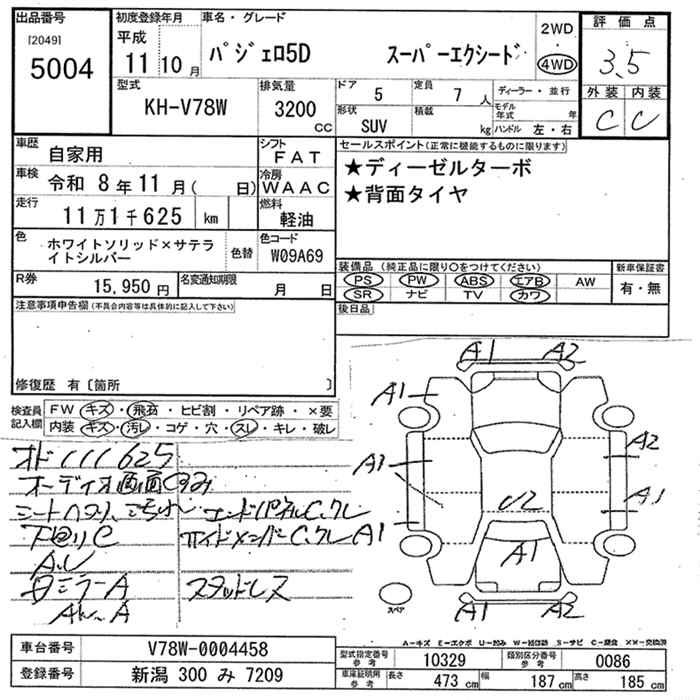 出品番号
[2049]
5004
初度登録年月
平成
11 10 月
車名・グレード
パジェロ5D スーパーエクシード
2WD
4WD
評価点
3.5
外装 内装
C C
型式
KH-V78W
排気量
3200 cc
ドア 5
定員 7 人
ディーラー・並行
形状 SUV
積載 kg
モデル年式 年
ハンドル 左・右
車歴 自家用
シフト FAT
車検 令和 8年11月( 日)
冷房 WAAC
走行 11万1千625 km
燃料 軽油
色 ホワイトソリッド×サテライトシルバー
色替
色コード W09A69
R券 15,950円
名変通知期限 月 日
セールスポイント(正常に機能するものに限ります)
★ディーゼルターボ
★背面タイヤ
装備品 (純正品に限り○をつけてください)
PS PW ABS エアB AW
SR ナビ TV カワ
新車保証書
有・無
後日品
注意事項申告欄(不具合内容等は具体的に記入して下さい)
修復歴 有〔箇所 〕
検査員記入欄
FW キズ・飛石・ヒビ割・リペア跡・×要
内装 キズ・汚レ・コゲ・穴・スレ・キレ・破レ
オド111625
オーディオ画面
エンドパネルC,クレ
サイドメンバーC,クレ
A.U
ミラーA
AW-A
スタッドレス
A1 A2
A1
A2
A1
A1
U2
A1
A1
A1 A2
スペア
A-キズ E-エクボ U-凹み W-補修跡 S-サビ C-腐食 XX-交換済
車台番号 V78W-0004458
登録番号 新潟 300 み 7209
型式指定番号 参考 10329
類別区分番号 参考 0086
車庫証明用 参考 長さ 473 cm 幅 187 cm 高さ 185 cm